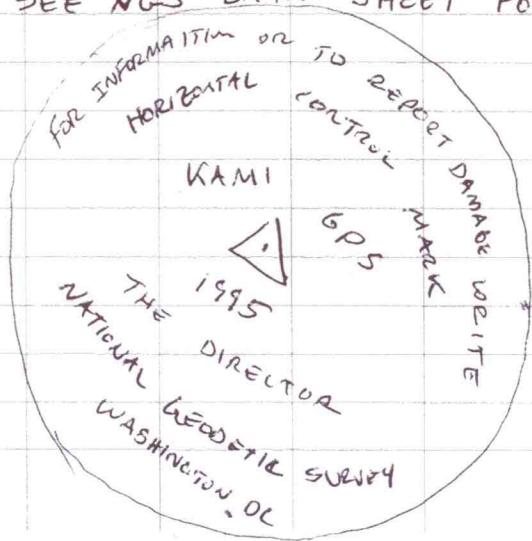 SEE NGS DATA SHEET FO
FOR INFORMAITION OR TO REPORT DAMAGE WRITE
HORIZONTAL CONTROL MARK
KAMI
GPS
1995
THE DIRECTOR
NATIONAL GEODETIC SURVEY
WASHINGTON, DC